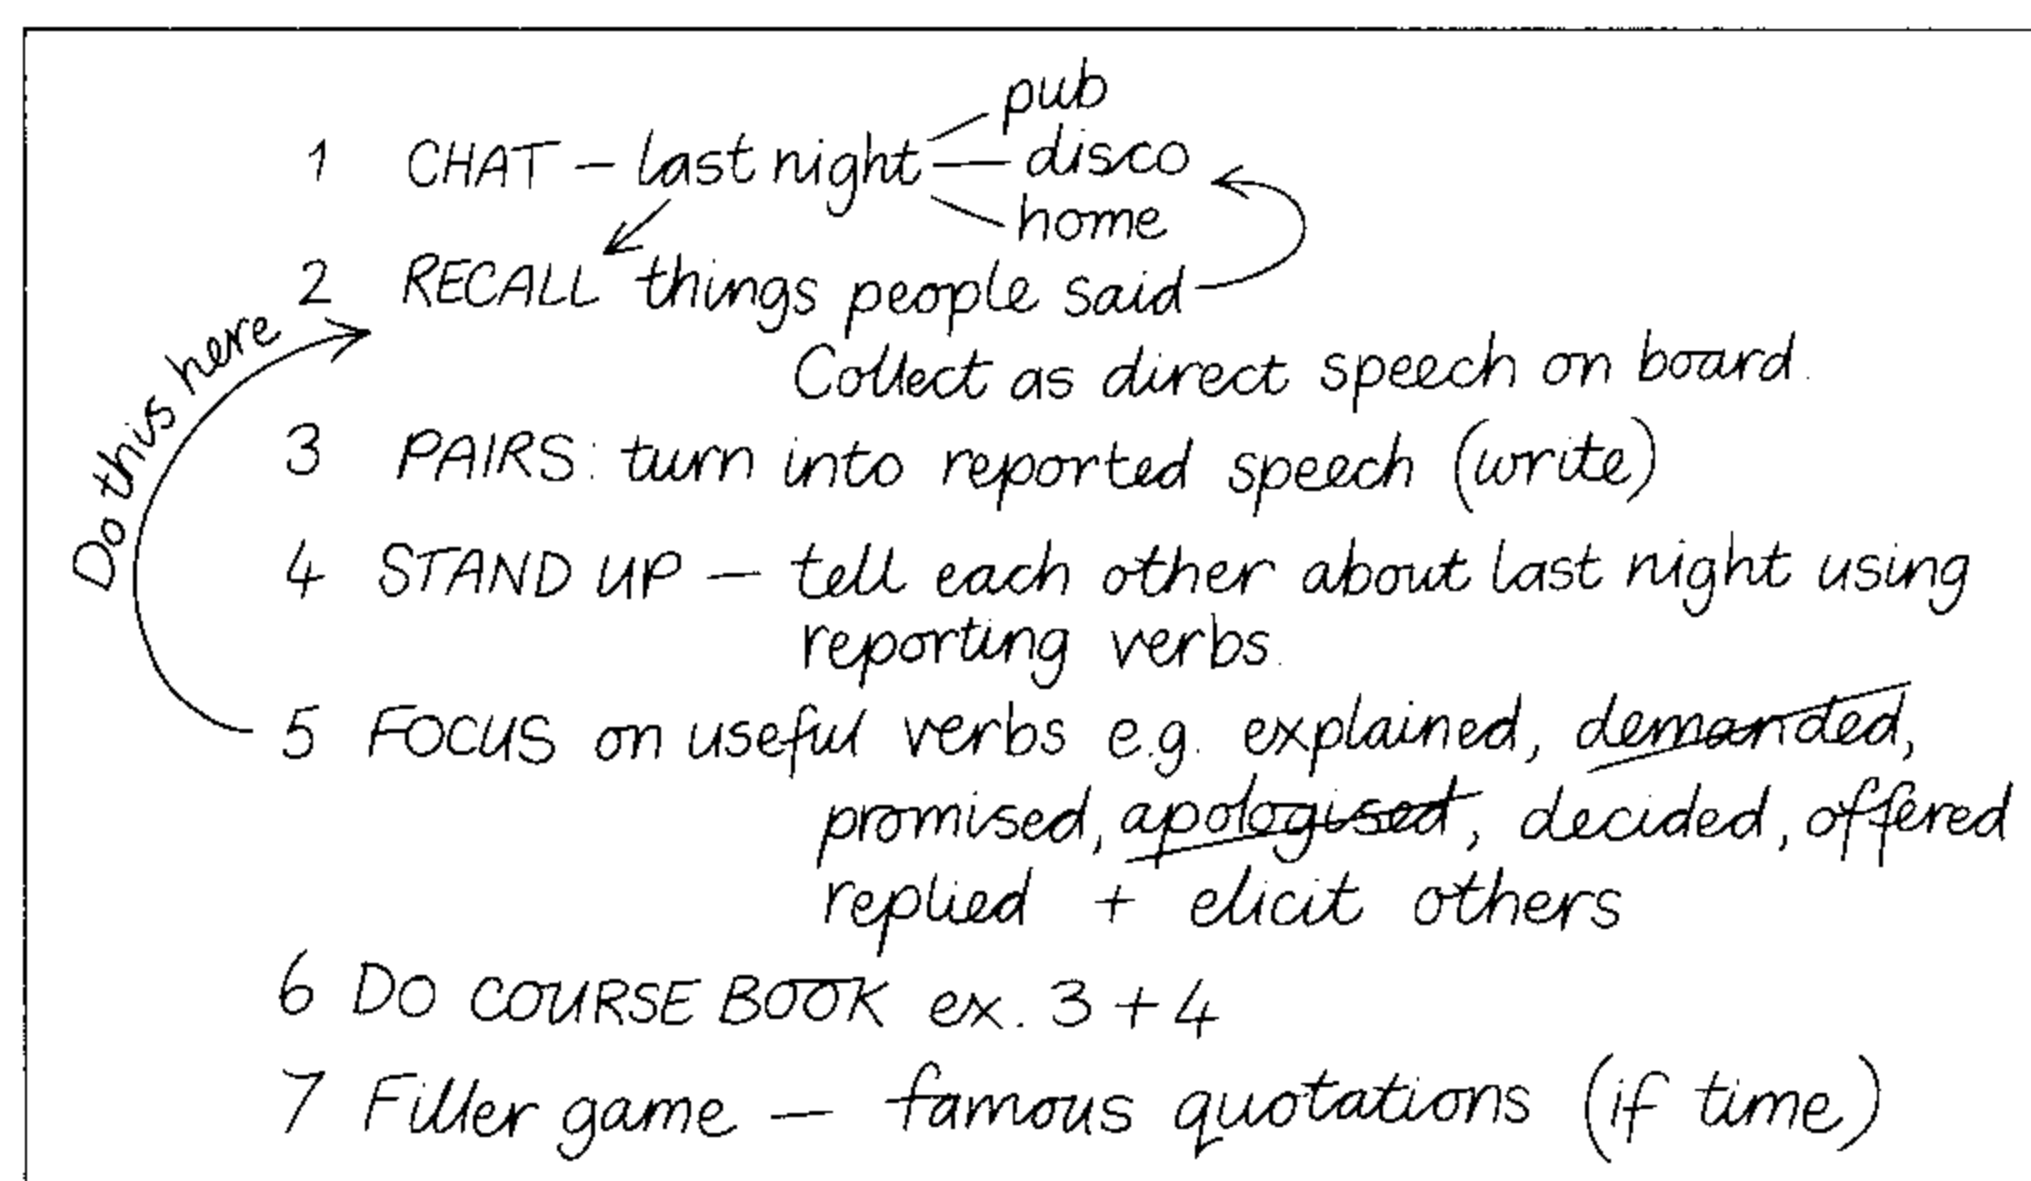 pub
1 CHAT – last night — disco
home
2 RECALL things people said
Do this here
Collect as direct speech on board.
3 PAIRS: turn into reported speech (write)
4 STAND UP – tell each other about last night using
reporting verbs.
5 FOCUS on useful verbs e.g. explained, demanded,
promised, apologised, decided, offered
replied + elicit others
6 DO COURSE BOOK ex. 3 + 4
7 Filler game — famous quotations (if time)